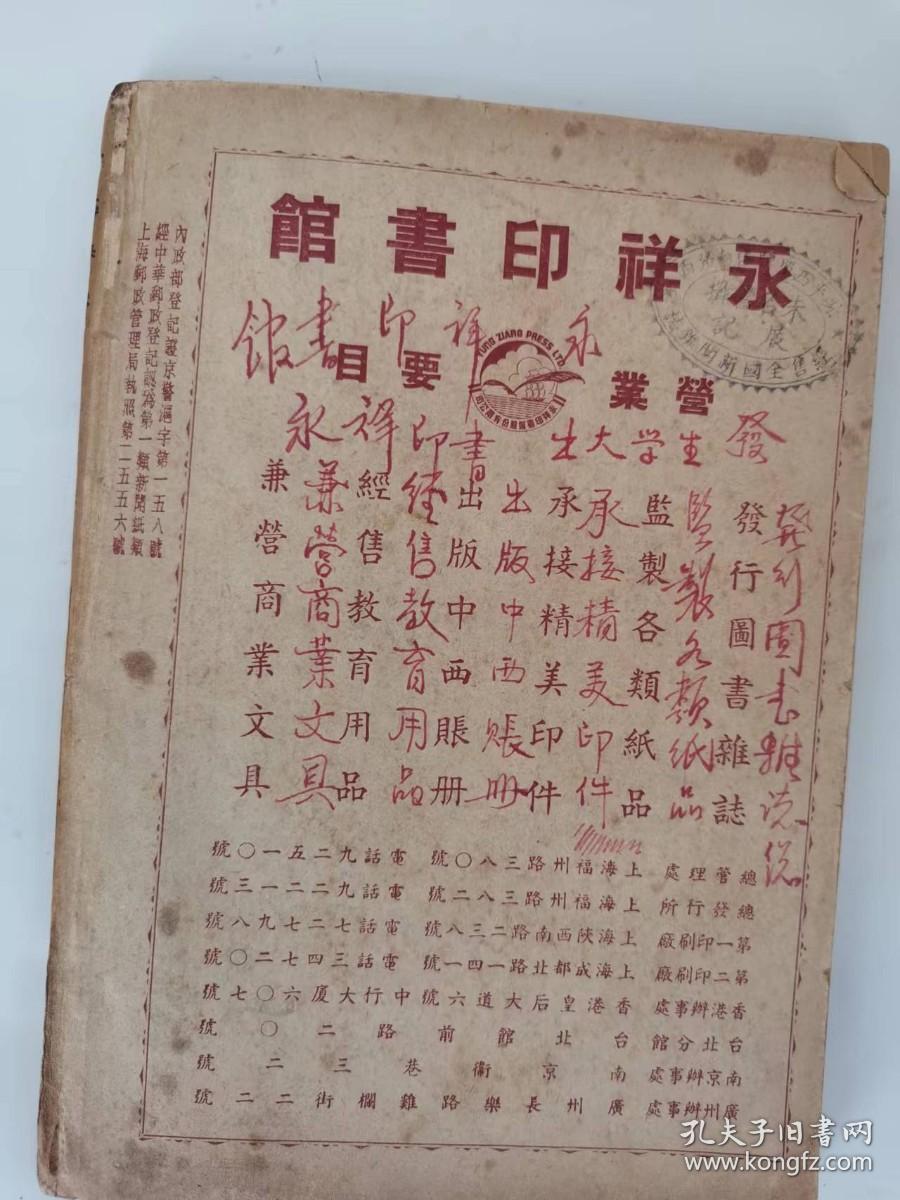 永祥印書館
永祥印書館
營業要目
YUNG ZIANG PRESS LTD
永祥印書館股份有限公司
發行圖書雜誌
監製各類紙品
監製各類紙品
承接精美印件
承接精美印件
出版中西賬册
出版中西賬册
經售教育用品
經售教育用品
兼營商業文具
兼營商業文具
永祥印書
大学生
發
總管理處 上海福州路三八〇號 電話九二五一〇號
總發行所 上海福州路三八二號 電話九二二一三號
第一印刷廠 上海陝西南路二三八號 電話七二七九八號
第二印刷廠 上海成都北路一四一號 電話三四七二〇號
香港辦事處 香港皇后大道六號中行大厦六〇七號
台北分館 台北館前路二〇號
南京辦事處 南京衞巷三二號
廣州辦事處 廣州長樂路雞欄街二二號
內政部登記證京警滬字第一五八號
經中華郵政登記認為第一類新聞紙類
上海郵政管理局執照第二五五六號
孔夫子旧书网
www.kongfz.com